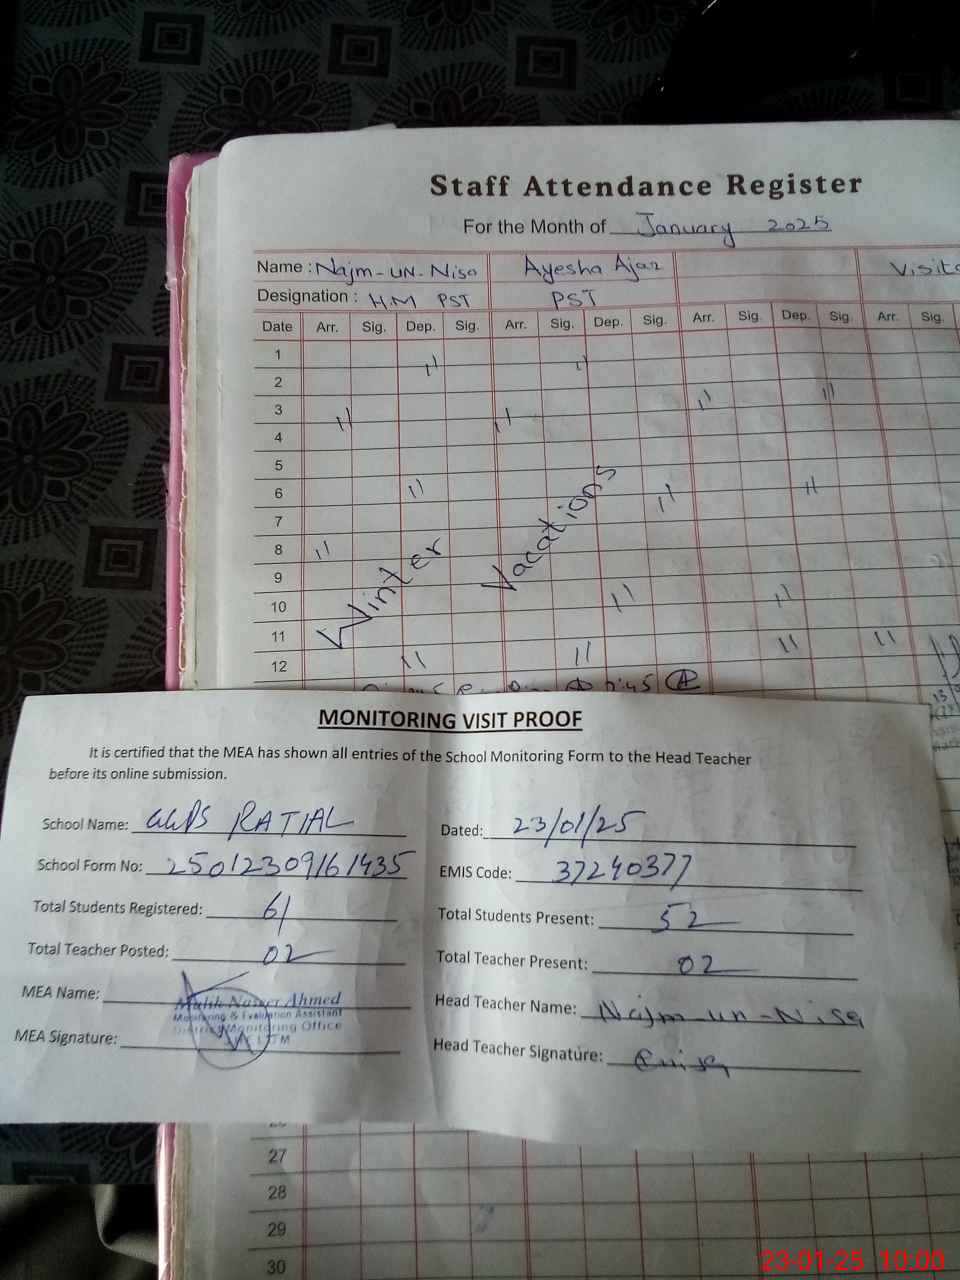 Staff Attendance Register
For the Month of January 2025
Name : Najm-un-Nisa Ayesha Ajaz
Designation : HM PST PST
Date Arr. Sig. Dep. Sig. Arr. Sig. Dep. Sig. Arr. Sig. Dep. Sig. Arr. Sig.
1
2
3
4
5
6
7
8
9
10
11
12
Winter Vacations
MONITORING VISIT PROOF
It is certified that the MEA has shown all entries of the School Monitoring Form to the Head Teacher
before its online submission.
School Name: GGPS RATIAL
Dated: 23/01/25
School Form No: 25012309161435
EMIS Code: 37240377
Total Students Registered: 61
Total Students Present: 52
Total Teacher Posted: 02
Total Teacher Present: 02
MEA Name:
Malik Naseer Ahmed
Monitoring & Evaluation Assistant
District Monitoring Office
Head Teacher Name: Najm-un-Nisa
MEA Signature:
Head Teacher Signature:
27
28
29
30
23-01-25 10:00